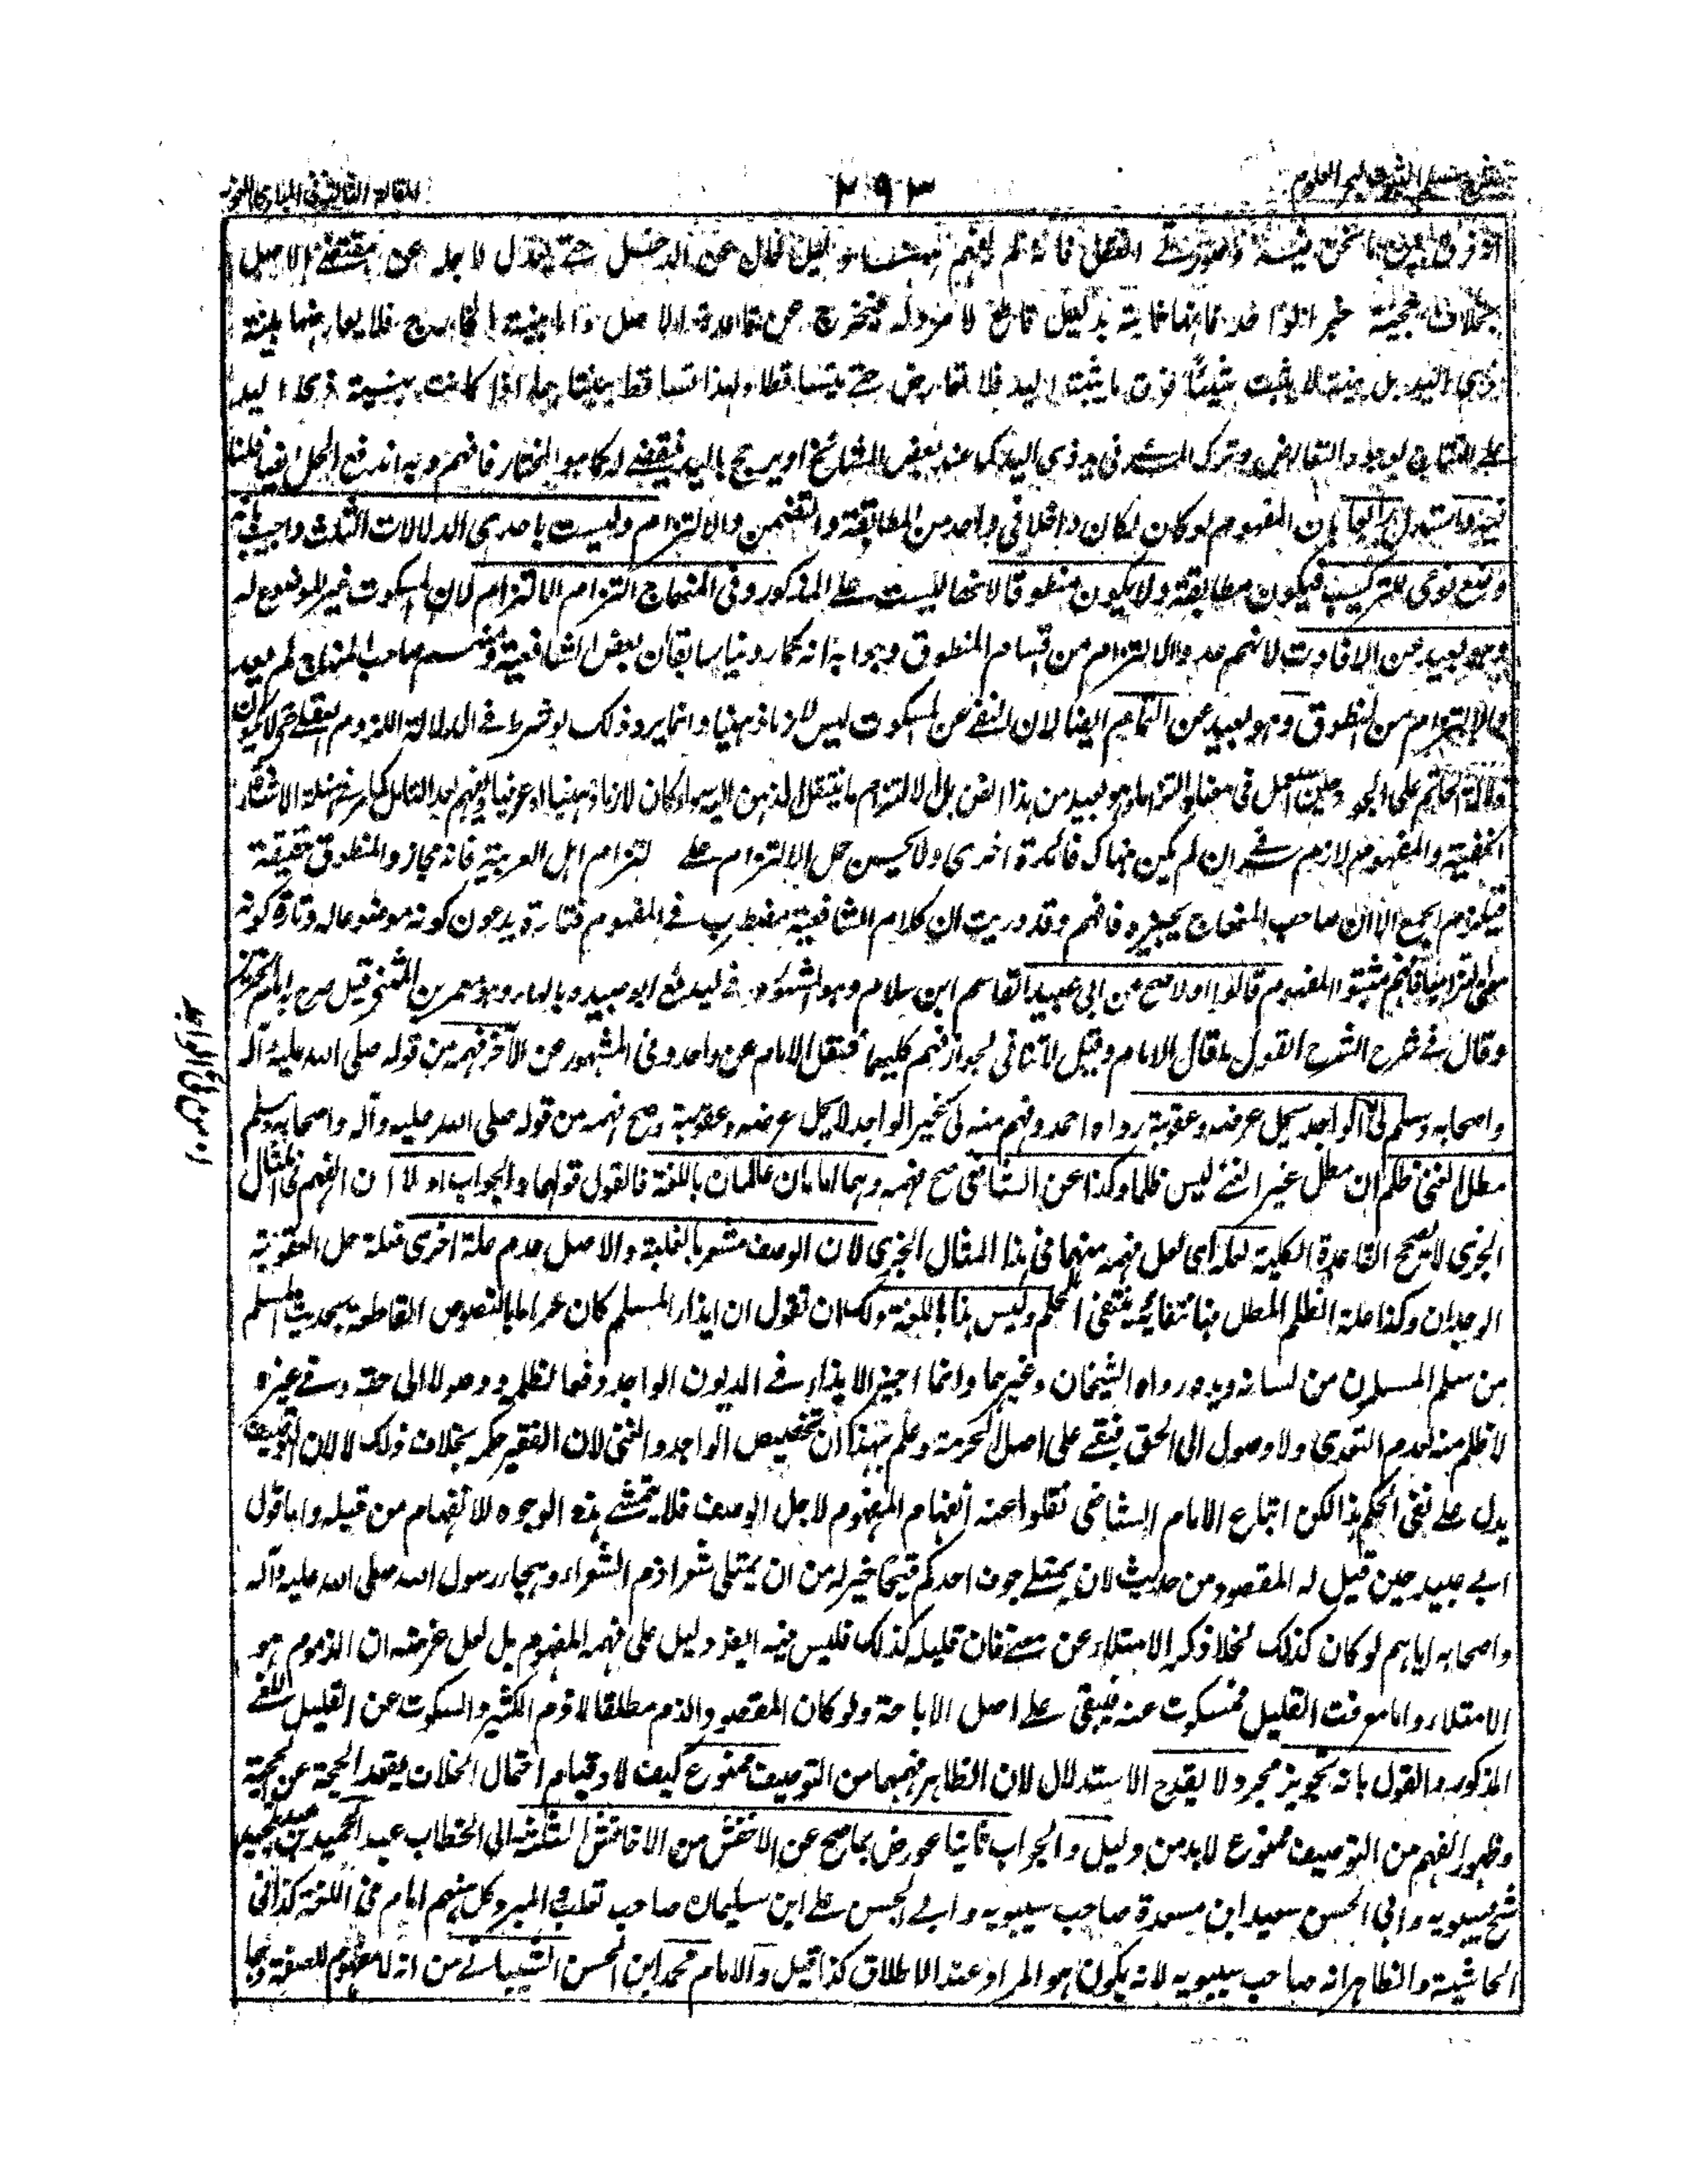 شرح مسلم الثبوت لبحر العلوم
٢٩٣
المقالة الثالثة فى المبادى اللغوية
فرق بين ما نحن فيه فانه لم يقم دليل خال عن الدخل حتے يعدل لاجله عن مقتضے الاصل
بخلاف حجية خبر الواحد فانها ثابتة بدليل قاطع لا مرد له فيخرج عن قاعدة الاصل واما بينة الخارج فلا يعارضها بينة
ذى اليد بل بينته لا يثبت شيئا فوق ما يثبته اليد فلا تعارض حتے يتساقطا ولهذا تساقط بينتا هما اذا كانت بينة ذى اليد
على النتاج لوجود التعارض وترك المدعى فى يد ذى اليد كما عند بعض المشائخ او يرجح باليد فيقضے له كما هو المختار فافهم وبه اندفع الحل ايضا قلنا
فيه واستدل رابعا بان المفهوم لو كان لكان داخلا فى واحد من المطابقة والتضمن والالتزام وليست باحدى الدلالات الثلث واجيب بانه
وضع نوعى للتركيب فيكون مطابقة ولا يكون منطوقا لانها ليست على المذكور وفى المنهاج التزام الالتزام لان المسكوت غير الموضوع له
وهو بعيد عن الافادت لانهم عدوا الالتزام من اقسام المنطوق وجوابه انه كما روينا سابقا ان بعض الشافعية ومنهم صاحب المنهاج لم يعد
والالتزام من المنطوق وهو بعيد عن التمام ايضا لان النفے عن المسكوت ليس لازما ذهنيا وانما يرد ذلك لو شرط فے الدلالة اللزوم العقلے حتى لا يكون
دلالة الحاتم على الجود التزاما وهو بعيد من هذا الفن بل الالتزام ما ينتقل الذهن اليه سواء كان لازما ذهنيا او عرفيا ويفهم بعد التامل كما فے مسئلة الاشارة
الخفية والمفهوم لازم عرفے ان لم يكن هناك فائدة اخرى ولا يحسن حمل الالتزام على التزام اهل العربية فانه مجاز والمنطوق حقيقة
فيلزم الجمع الا ان صاحب المنهاج يجيزه فافهم وقد دريت ان كلام الشافعية مضطرب فے المفهوم فتارة يدعون كونه موضوعا له وتارة كونه
التزاميا فافهم مثبتوا المفهوم قالوا اولا صح من ابى عبيد القاسم ابن سلام وهو المشهور فے البديع ابو عبيدة بالهاء وهو معمر بن المثنى قيل صرح به امام الحرمين
وقال فے شرح الشرح القول ما قال الامام وقيل لا تنافى لجواز فهم كليهما فنقل الامام عن واحد وفى المشهور عن الآخر فهمه من قوله صلى الله عليه وآله
واصحابه وسلم لى الواجد يحل عرضه وعقوبته رواه احمد وفهم منه لى غير الواجد لا يحل عرضه وعقوبته وصح فهمه من قوله صلى الله عليه وآله واصحابه وسلم
مطل الغنى ظلم ان مطل غير الغنے ليس ظلما وكذا عن الشافعى صح فهمه وهما امامان عالمان باللغة فالقول قولهما والجواب اولا ان الفهم فى المثال
الجزئى لا يصحح القاعدة الكلية لعله اى لعل فهمه منهما فى هذا المثال الجزئى لان الوصف مشعر بالعلية والاصل عدم علة اخرى فعلة حل العقوبة
الوجدان وكذا علة الظلم المطل فبانتفائه ينتفى الحكم وليس هذا باللغة ولك ان تقول ان ايذاء المسلم كان حراما بالنصوص القاطعة بحديث المسلم
من سلم المسلمون من لسانه ويده رواه الشيخان وغيرهما وانما اجيز الايذاء فے المديون الواجد دفعا لظلمه ووصولا الى حقه وفے غيره
لا ظلم منه لعدم التعدى ولا وصول الى الحق فبقے على اصل الحرمة وعلم بهذا ان تخصيص الواجد والغنى لان الفقير حكمه بخلاف ذلك لا لان التوصيف
يدل على نفى الحكم هذا لكن اتباع الامام الشافعى نقلوا عنه انفهام المفهوم لاجل الوصف فلا يتمشے هذه الوجوه لانفهام من قبيله واما قول
ابے عبيد حين قيل له المقصود من حديث لان يمتلے جوف احدكم قيحا خير له من ان يمتلى شعرا ذم الشعراء وهجاء رسول الله صلى الله عليه وآله
واصحابه اياهم لو كان كذلك لخلا ذكر الامتلاء عن معنے فان قليله كذلك فليس فيه ايضا دليل على فهمه المفهوم بل لعل غرضه ان المذموم هو
الامتلاء واما معرفة القليل فمسكوت عنه فيبقى على اصل الاباحة ولو كان المقصود الذم مطلقا لا ذم الكثير والسكوت عن القليل للغے
المذكور والقول بانه تجويز مجرد لا يقدح الاستدلال لان الظاهر فهمهما من التوصيف ممنوع كيف لا وقيام احتمال الخلاف يقعد الحجة عن الحجية
وظهور الفهم من التوصيف ممنوع لا بد من دليل والجواب ثانيا عورض بما صح عن الاخفش من الاخافش الثلثة ابى الخطاب عبد الحميد بن عبد المجيد
شيخ سيبويه وابى الحسن سعيد ابن مسعدة صاحب سيبويه وابے الحسن على ابن سليمان صاحب ثعلب والمبرد وكل منهم امام فى اللغة كذا فى
الحاشية والظاهر انه صاحب سيبويه لانه يكون هو المراد عند الاطلاق كذا قيل والامام محمد ابن الحسن الشيبانے من انه لا مفهوم للصفة وهما